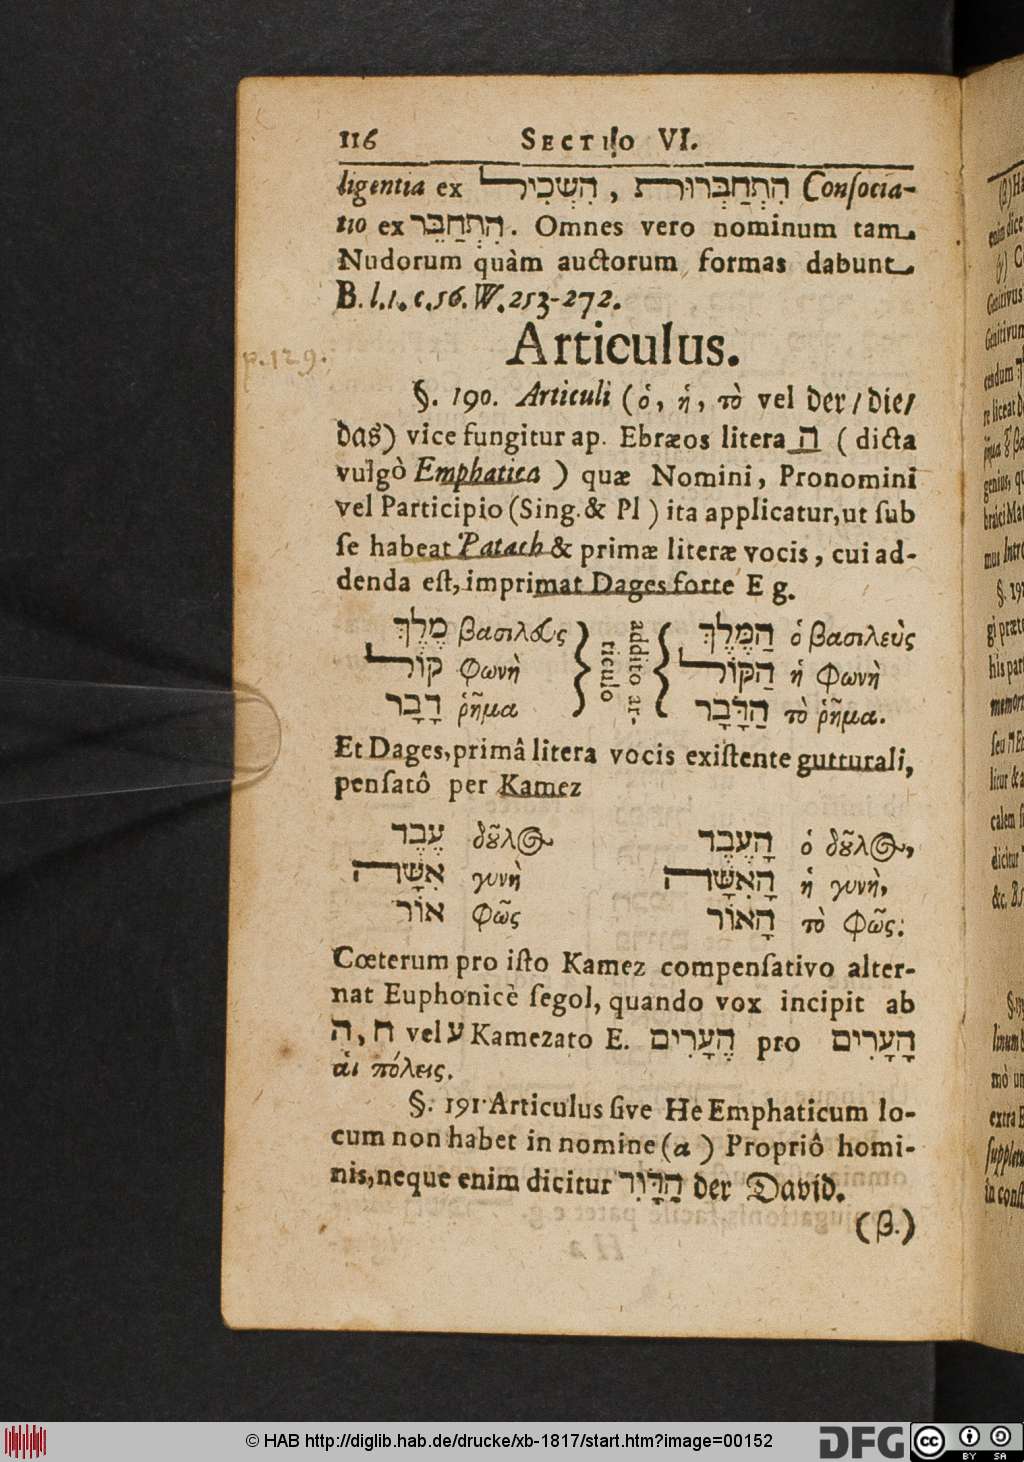 116 SECTIO VI.
ligentia ex הִשְׂכִּיל, הִתְחַבְּרוּת Conſocia-
tio ex הִתְחַבֵּר. Omnes vero nominum tam
Nudorum quàm auctorum formas dabunt
B. l.1. c.56. W. 253-272.
Articulus.
p. 129.
§. 190. Articuli (ὁ, ἡ, τὸ vel der/ die/
das) vice fungitur ap. Ebræos litera ה (dicta
vulgò Emphatica) quæ Nomini, Pronomini
vel Participio (Sing. & Pl) ita applicatur, ut ſub
ſe habeat Patach & primæ literæ vocis, cui ad-
denda eſt, imprimat Dages forte E g.
מֶלֶךְ βασιλεὺς } addito ar- { הַמֶּלֶךְ ὁ βασιλεὺς
קוֹל φωνὴ } ticulo { הַקּוֹל ἡ φωνὴ
דָּבָר ῥῆμα } { הַדָּבָר τὸ ῥῆμα.
Et Dages, primâ litera vocis exiſtente gutturali,
penſatô per Kamez
עֶבֶד δοῦλος הָעֶבֶד ὁ δοῦλος,
אִשָּׁה γυνὴ הָאִשָּׁה ἡ γυνὴ,
אוֹר φῶς הָאוֹר τὸ φῶς:
Cœterum pro iſto Kamez compenſativo alter-
nat Euphonicè ſegol, quando vox incipit ab
ה, ח vel ע Kamezato E. הֶעָרִים pro הָעָרִים
αἱ πόλεις.
§. 191 Articulus ſive He Emphaticum lo-
cum non habet in nomine (α) Propriô homi-
nis, neque enim dicitur הַדָּוִד der David.
(β.)
© HAB http://diglib.hab.de/drucke/xb-1817/start.htm?image=00152
DFG
CC BY SA